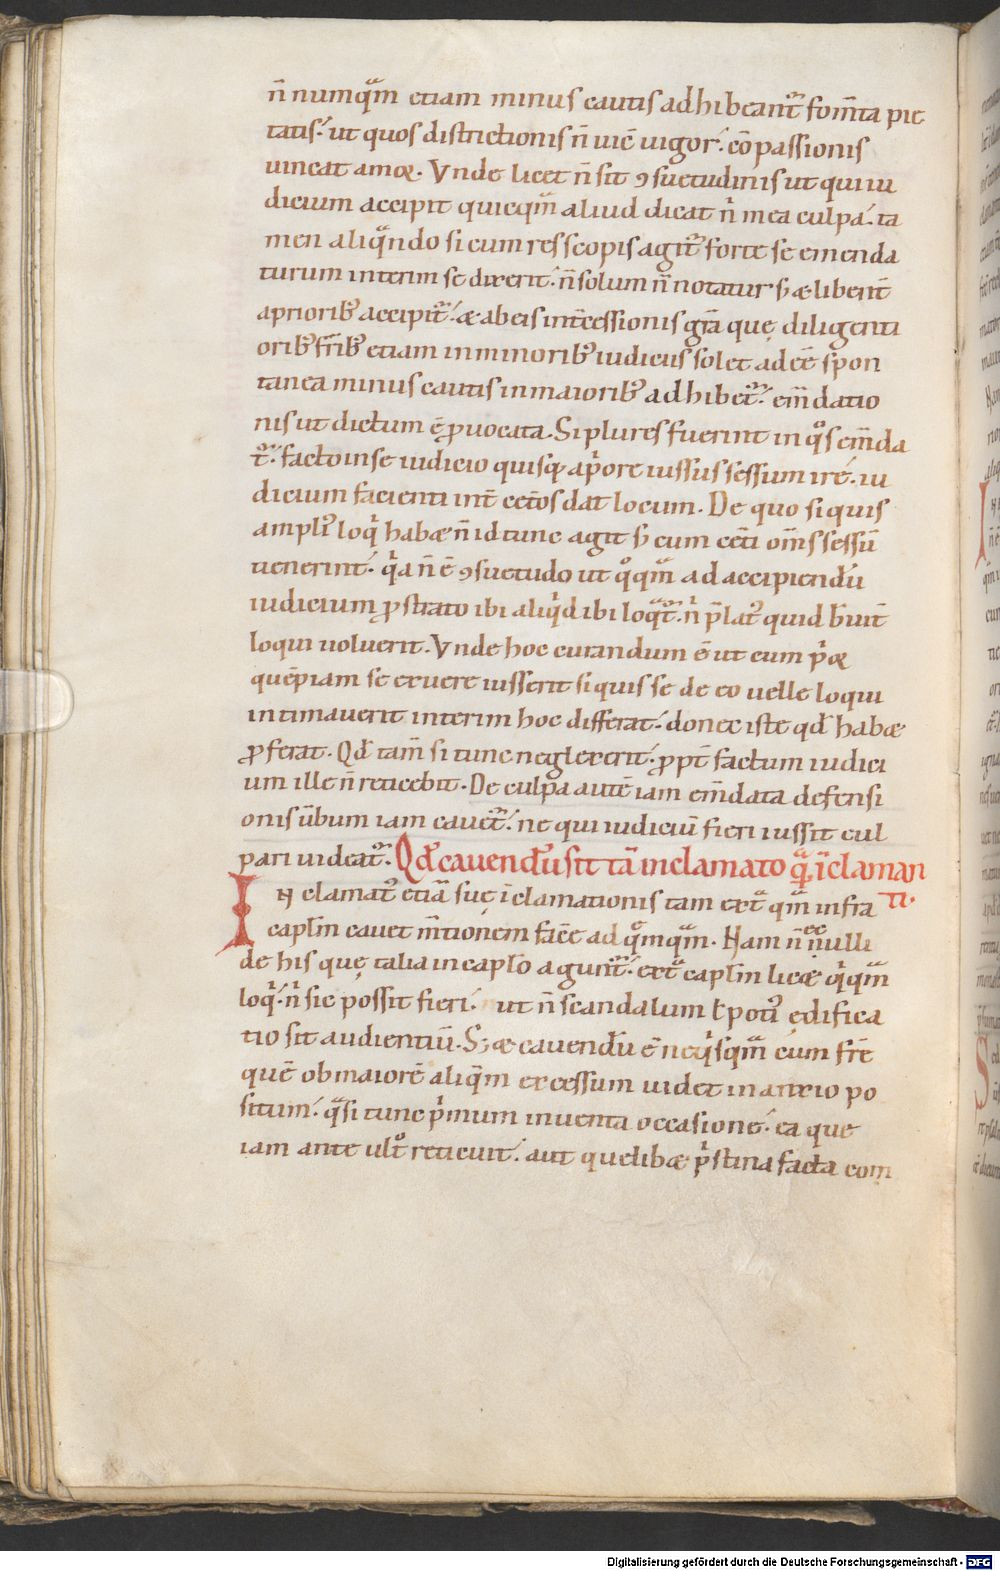 n̄ numqᵃm etiam minus cautis adhibeant᷑ fom̄ta pie
tatis. ut quos districtionis n̄ uic̄ uigor. cō passionis
uincat amoꝝ. Vnde licet n̄ sit ꝯsuetudinis ut qui iu
dicium accipit quicqᵃm aliud dicat nⁱ mea culpa. ta
men aliqᵃndo si cum res scopis agit᷑ forte se emenda
turum interim se dixerit. n̄ solum n̄ notatur s; & libent̄
a priorib; accipit᷑. & ab eis int̄cessionis gr̄a quę diligenti
orib; fr̄ib; etiam in minorib; iudiciis solet adeē spon
tanea minus cautis in maiorib; adhibet᷑. em̄datio
nis ut dictum ē ꝓuocata. Si plures fuerint in qᵒs em̄da
t᷑. facto in se iudicio quisq; a pⁱore iussus sessum ire. iu
dicium facienti int̄ cet̄os dat locum. De quo si quis
ampli᷑ loqⁱ hab& n̄ id tunc agit s; cum cet̄i om̄s sessū
uenerint. qⁱa n̄ ē ꝯsuetudo ut qᵒqᵃm ad accipiendū
iudicium ꝓstrato ibi aliqⁱd ibi loqᵃt᷑. nⁱ p̄lat᷑ quid breuit̄
loqui uoluerit. Vnde hoc curandum ē ut cum pⁱoꝝ
quēpiam se exuere iusserit si quis se de eo uelle loqui
intimauerit interim hoc differat. donec iste qd̄ hab&
ꝓferat. Qd̄ tam̄ si tunc neglexerit. ꝓpt̄ factum iudici
um ille n̄ reticebit. De culpa autē iam em̄data defensi
onis ūbum iam cauet᷑. ne qui iudiciū fieri iussit cul
pari uideat᷑. Qd̄ cauendū sit tā inclamato qᵃ̄ īclaman
ti.
In clamat᷑ etiā suę īclamationis tam extᵃ qᵃm infra
capl̄m cauet m̄tionem facē ad qᵒmqᵃm. Nam n̄ nulli ec
de his quę talia in caplō agunt᷑. extᵃ capl̄m lic& qⁱqᵃm
loqⁱ. nⁱ sic possit fieri. ut n̄ scandalum s; poti᷑ ędifica
tio sit audientiū. S; & cauendū ē ne qⁱsqᵃm cum fr̄e
quē ob maiorē aliqⁱm excessum uidet in anxio po
situm. qᵃsi tunc pⁱmum inuenta occasione. ea que
iam ante ultᵒ reticuit. aut quelib& pⁱstina facta com
Digitalisierung gefördert durch die Deutsche Forschungsgemeinschaft - DFG